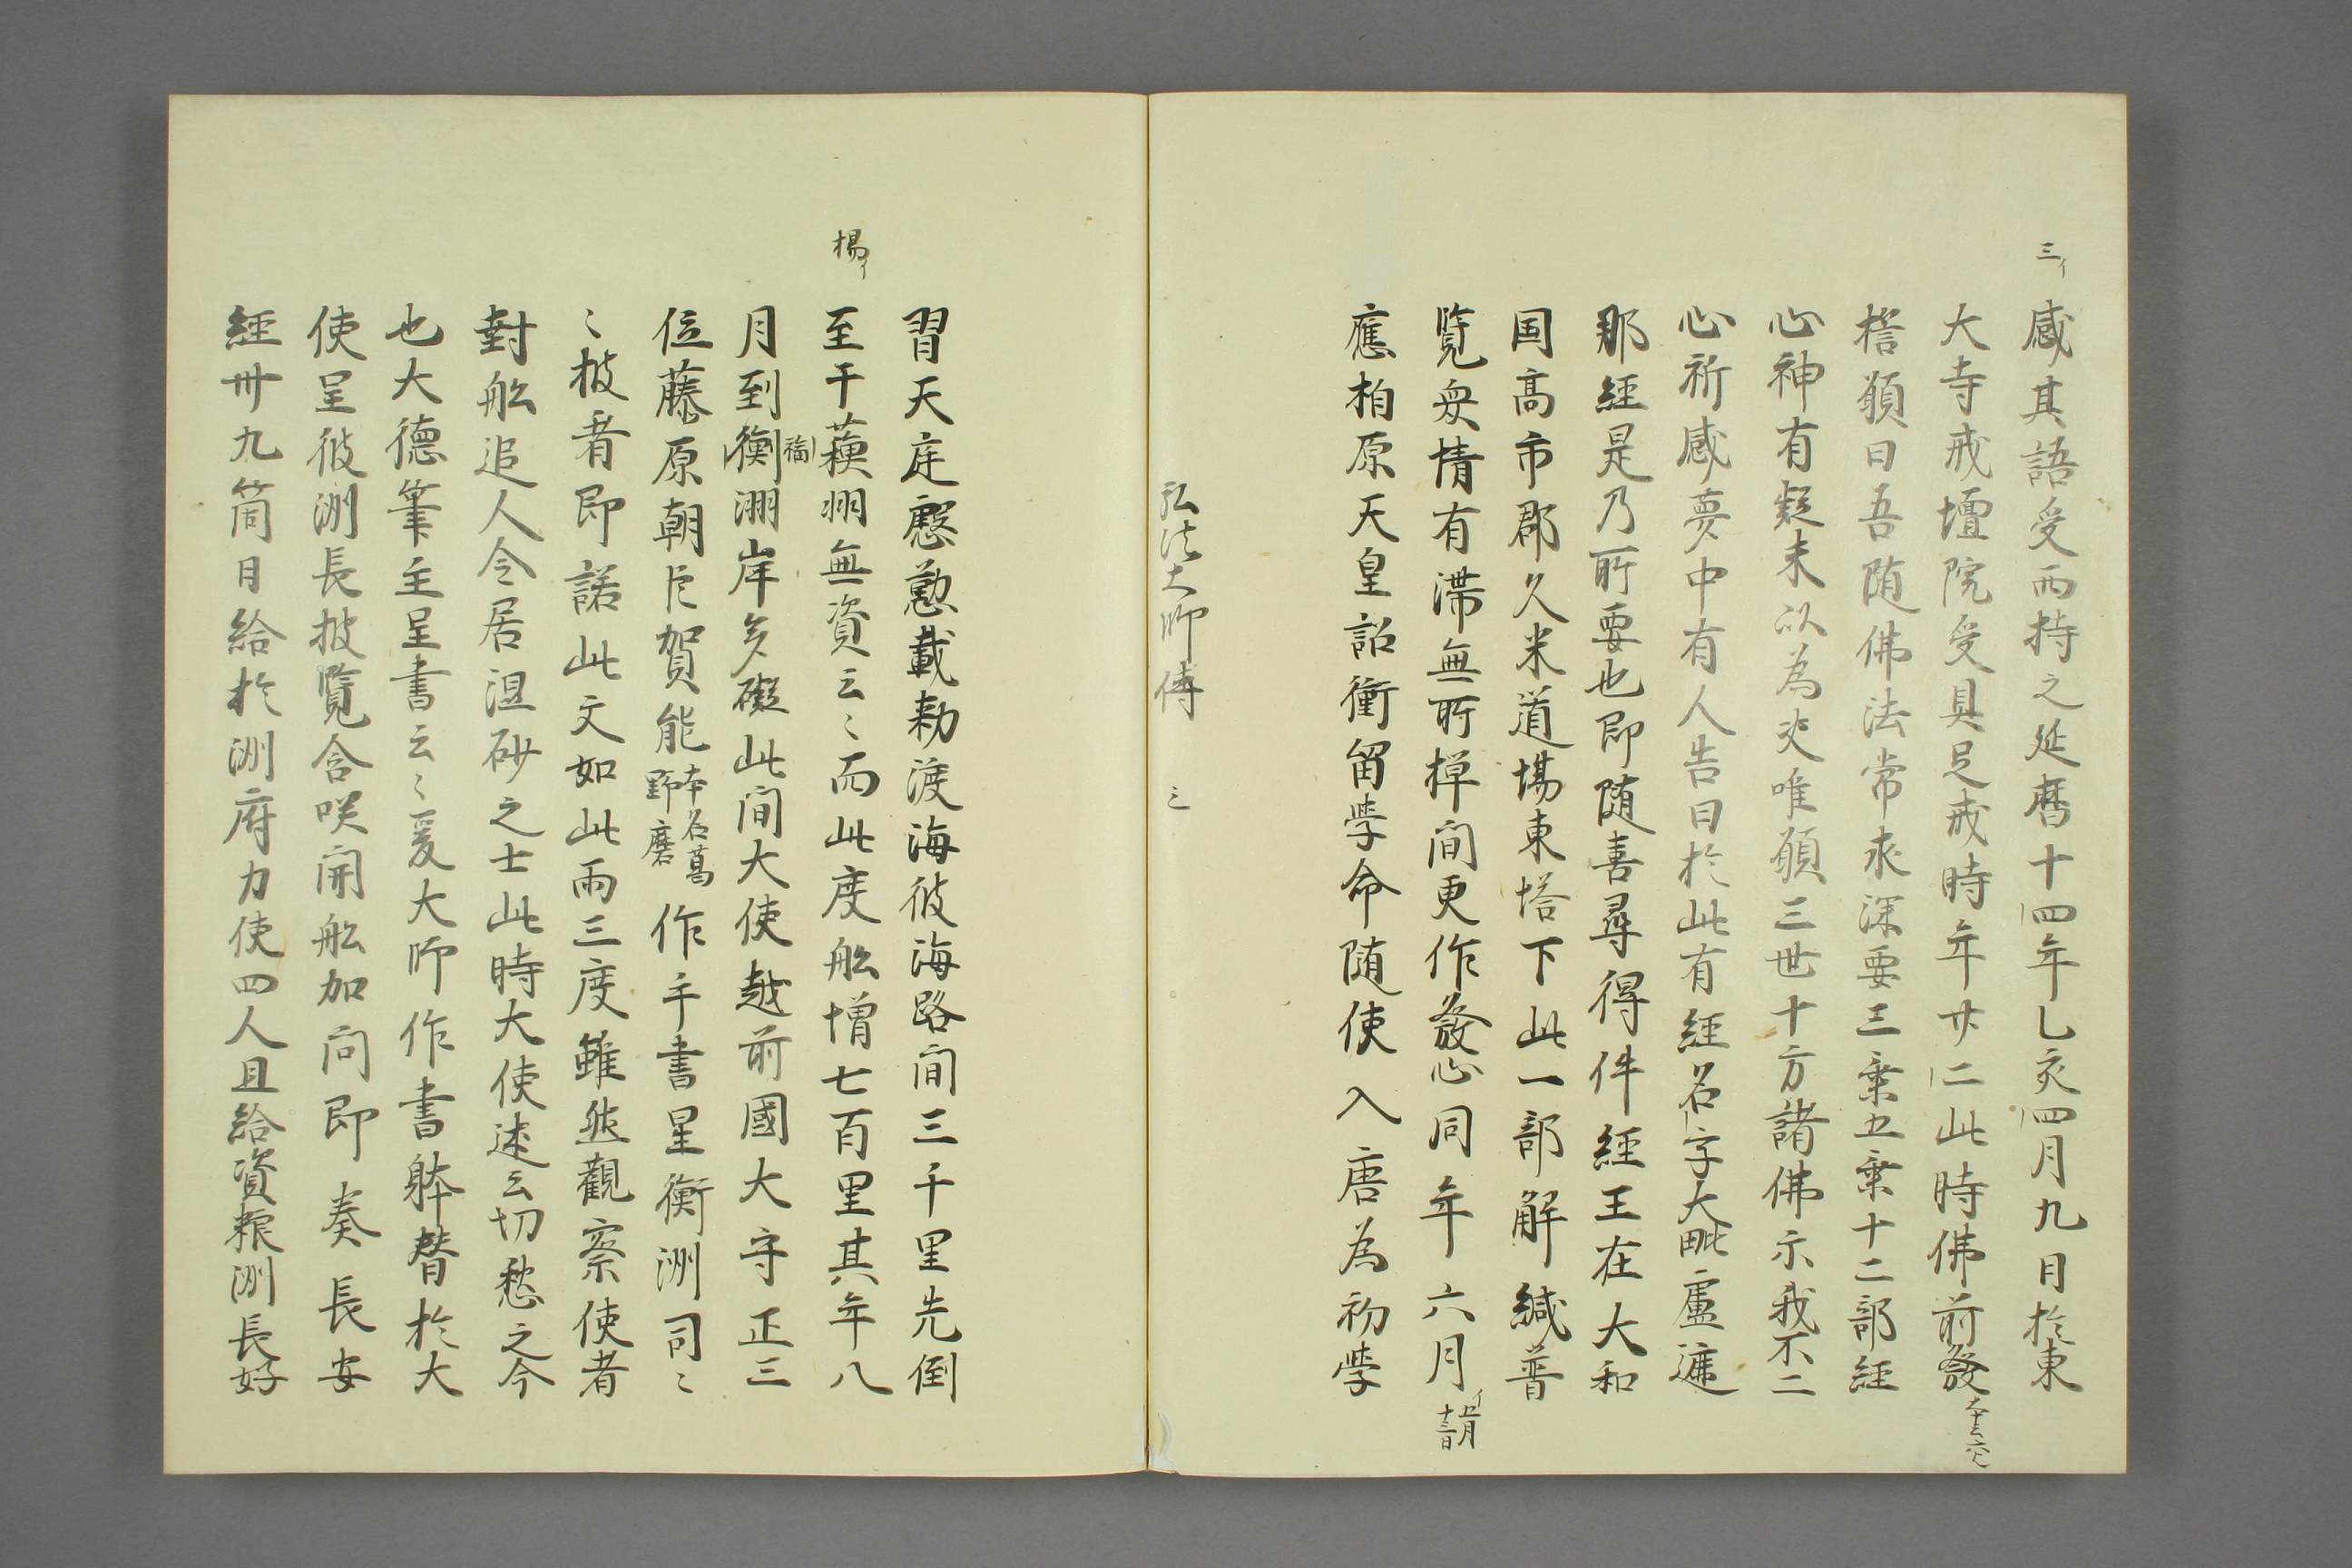 三イ
感其語受而持之延暦十四年乙亥四月九日於東
大寺戒壇院受具足戒時年廿二此時佛前發
誓願曰吾随佛法常求深要三乗五乗十二部經
心神有疑未以為决唯願三世十方諸佛示我不二
心祈感夢中有人告曰於此有經名字大毗盧遮
那經是乃所要也即随喜尋得件經王在大和
国高市郡久米道場東塔下此一部解緘普
覽衆情有滞無所憚問更作發心同年六月
應柏原天皇詔衝留學命随使入唐為初學
弘法大師傳 三
習天庭慇懃載勅渡海彼海路間三千里先倒
楊イ
至于蘓州無資云〻而此度舩増七百里其年八
月到衡洲岸多礙此間大使越前國大守正三
福
位藤原朝臣賀能
本名葛
野麿
作手書呈衡洲司〻
〻披者即諾此文如此両三度雖然觀察使者
封舩追人令居湿砂之士此時大使述云切愁之今
也大德筆主呈書云〻爰大師作書躰替於大
使呈彼洲長披覽含咲開舩加問即奏長安
經卅九箇日給於洲府力使四人且給資粮洲長好